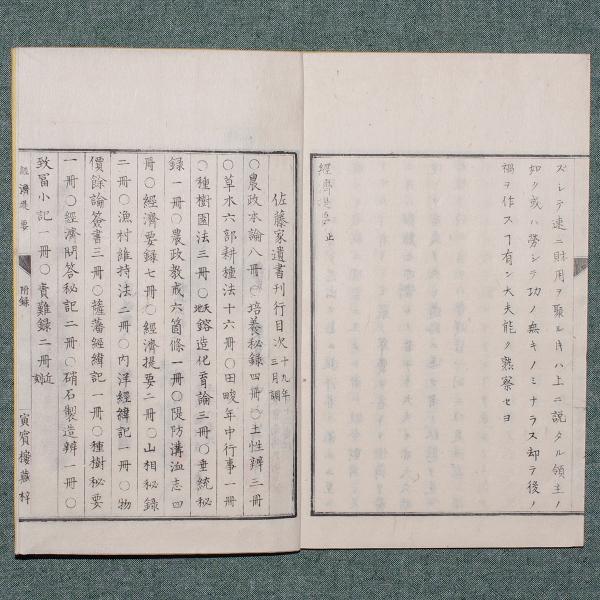 ズシテ速ニ財用ヲ聚ルキハ上ニ説タル領主ノ
如ク或ハ勞シテ功ノ無キノミナラス却テ後ノ
禍ヲ作スヿ有ン大夫能ク熟察セヨ
經濟提要 止
佐藤家遺書刊行目次 十九年三月調
○農政本論八冊○培養秘録四冊○土性辨三冊
○草木六部耕種法十六冊○田畯年中行事一冊
○種樹園法三冊○天地鎔造化育論三冊○垂統秘
録一冊○農政教戒六箇條一冊○隄防溝洫志四
冊○經濟要録七冊○經濟提要二冊○山相秘録
二冊○漁村維持法二冊○内洋經緯記一冊○物
價餘論簽書三冊○薩藩經緯記一冊○種樹秘要
一冊○經濟問答秘記二冊○硝石製造辨一冊○
致冨小記一冊○責難録二冊近刻
經濟提要 附録 寅賓樓藏梓